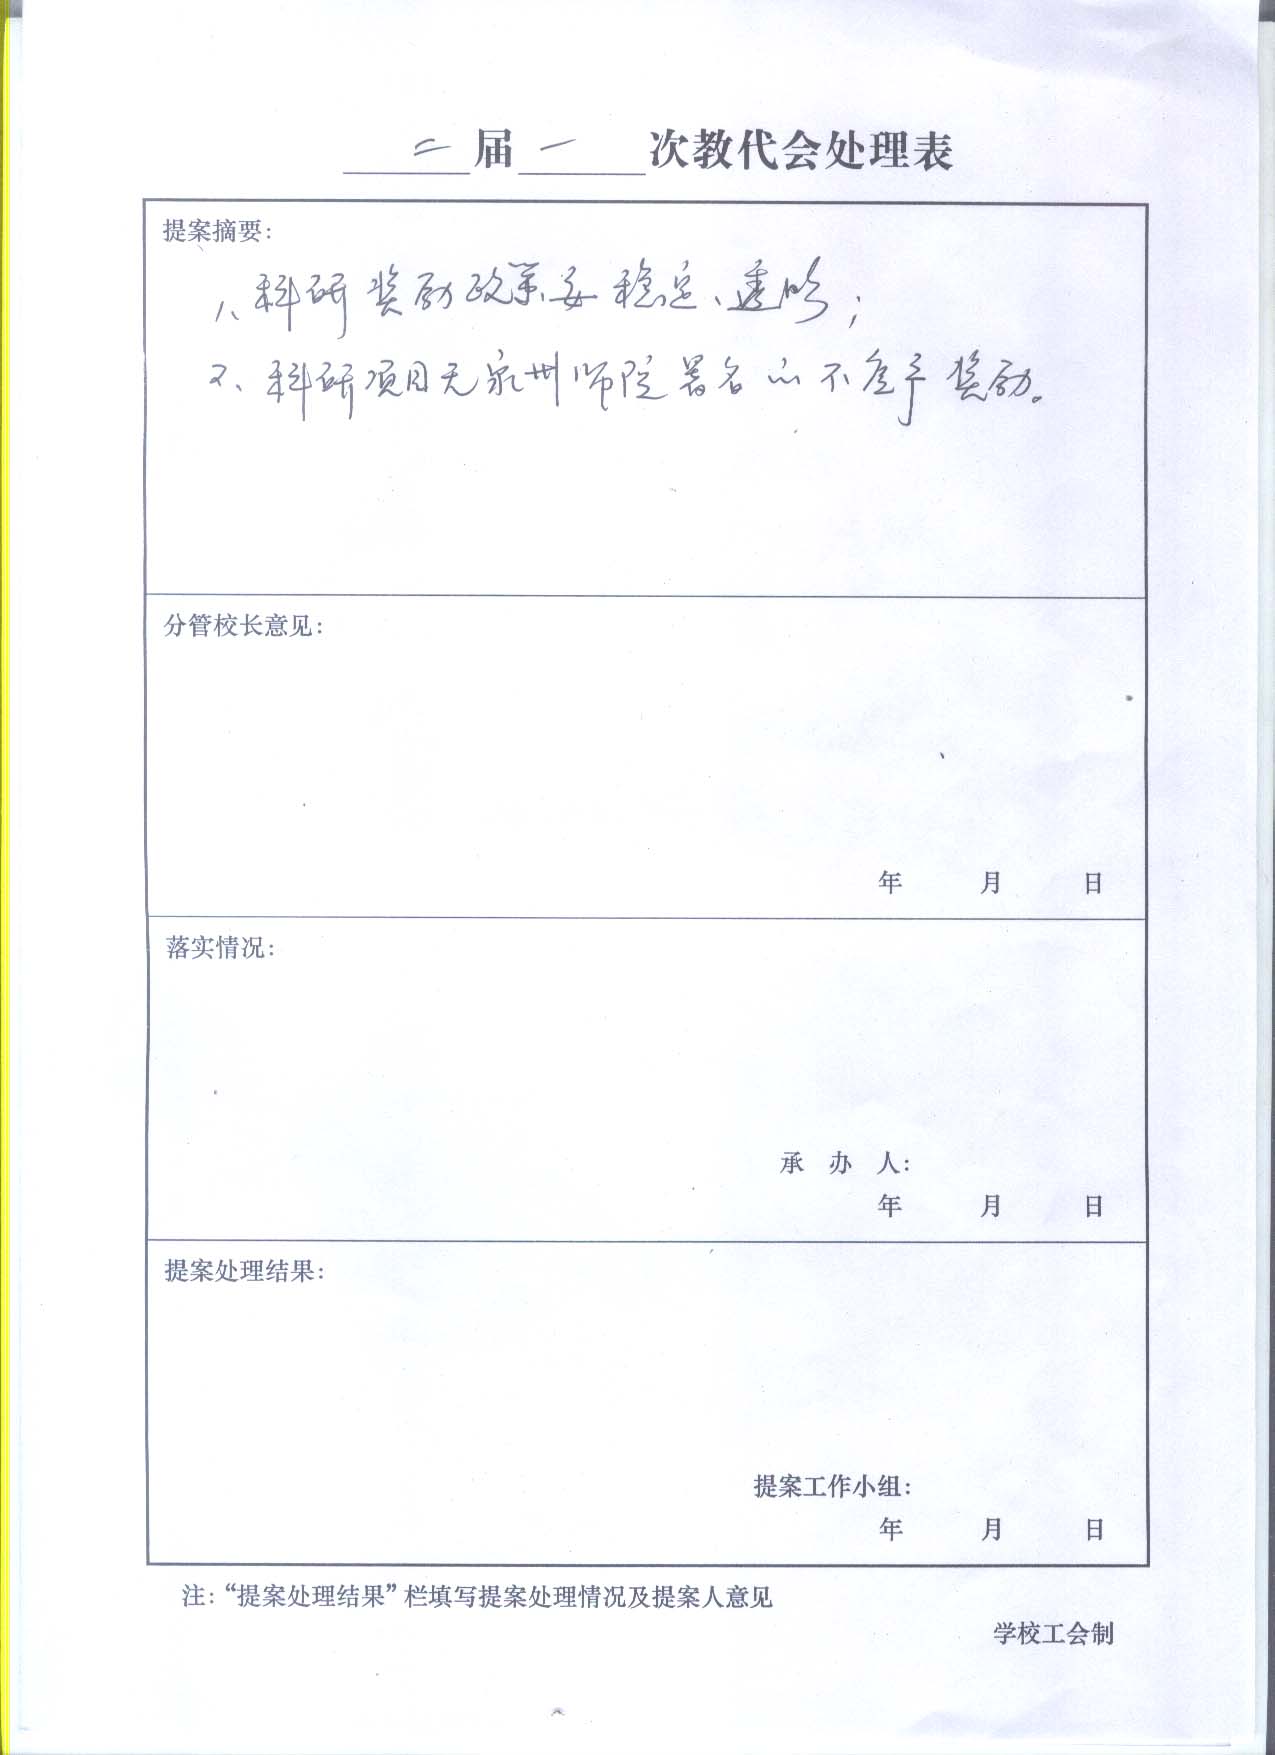 二届一次教代会处理表
提案摘要：
1、科研奖励政策要稳定、透明；
2、科研项目无泉州师院署名的不应予奖励。
分管校长意见：
年 月 日
落实情况：
承 办 人：
年 月 日
提案处理结果：
提案工作小组：
年 月 日
注：“提案处理结果”栏填写提案处理情况及提案人意见
学校工会制